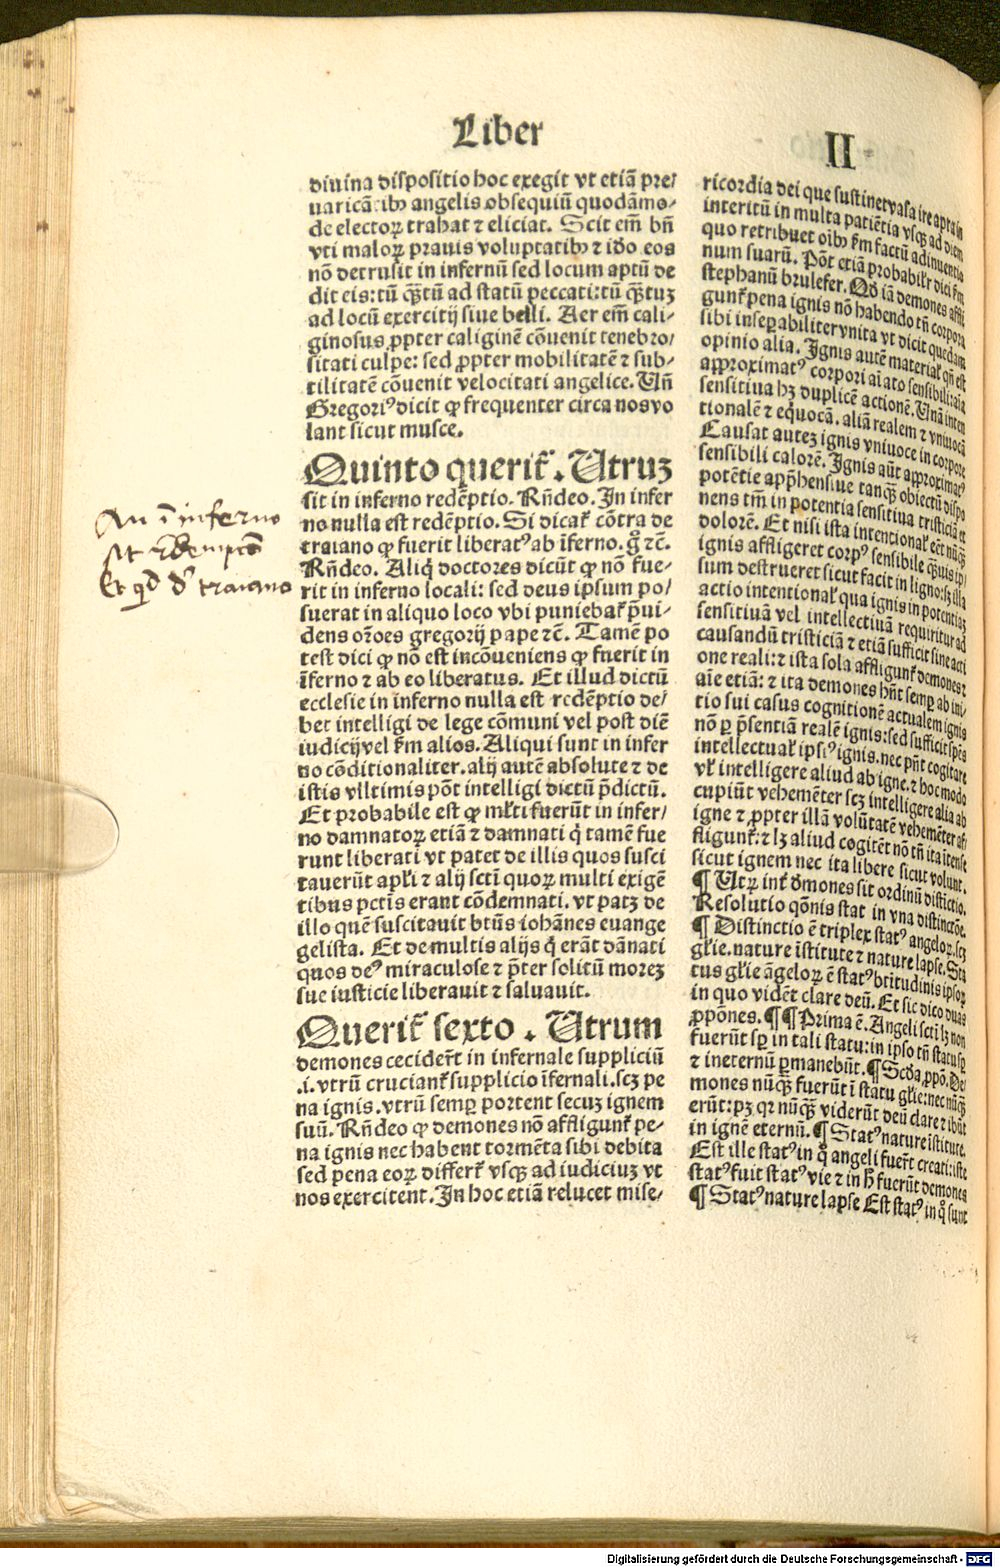 Liber
II
diuina dispositio hoc exegit vt etiã pre/
uaricãtibꝰ angelis obsequiũ quodãmo-
de electoꝝ trahat ⁊ eliciat. Scit em̃ bñ
vti maloꝝ prauis voluptatibꝰ ⁊ iõo eos
nõ detrusit in infernũ sed locum aptũ de
dit eis: tũ qꝫtũ ad statũ peccati: tũ qꝫtuꝫ
ad locũ exercitij siue belli. Aer em̃ cali-
ginosus ꝓpter caliginẽ cõuenit tenebro/
sitati culpe: sed ꝓpter mobilitatẽ ⁊ sub-
tilitatẽ cõuenit velocitati angelice. Uñ
Gregoriꝰ dicit ꝙ frequenter circa nos vo
lant sicut musce.
Quinto querit᷑. Utruꝫ
sit in inferno redẽptio. Rñdeo. In infer
no nulla est redẽptio. Si dicat᷑ cõtra de
traiano ꝙ fuerit liberatꝰ ab ĩferno. g̊ ⁊c̃.
Rñdeo. Aliq̇ doctores dicũt ꝙ nõ fue-
rit in inferno locali: sed deus ipsum po/
suerat in aliquo loco vbi puniebat᷑ p̃ui-
dens or̃oes gregorij pape ⁊c̃. Tamẽ po
test dici ꝙ nõ est incõueniens ꝙ fuerit in
ĩferno ⁊ ab eo liberatus. Et illud dictũ
ecclesie in inferno nulla est redẽptio de/
bet intelligi de lege cõmuni vel post diẽ
iudicij vel s̃m alios. Aliqui sunt in infer
no cõditionaliter. alij autẽ absolute ⁊ de
istis vltimis põt intelligi dictũ p̃dictũ.
Et probabile est ꝙ ml̃ti fuerũt in infer/
no damnatoꝝ etiã ⁊ damnati q̇ tamẽ fue
runt liberati vt patet de illis quos susci
tauerũt apl̃i ⁊ alij sctĩ quoꝝ multi exigẽ
tibus pctĩs erant cõdemnati. vt patꝫ de
illo quẽ suscitauit btũs iohãnes euange
gelista. Et de multis alijs q̇ erãt dãnati
quos deꝰ miraculose ⁊ p̃ter solitũ moreꝫ
sue iusticie liberauit ⁊ saluauit.
Querit᷑ sexto. Utrum
demones cecider̃t in infernale suppliciũ
.i. vtrũ crucianť supplicio ĩfernali. scꝫ pe
na ignis. vtrũ semꝑ portent secuꝫ ignem
suũ. Rñdeo ꝙ demones nõ affligunť pe-
na ignis nec habent tormẽta sibi debita
sed pena eoꝝ differť vsqꝫ ad iudiciuꝫ vt
nos exercitent. In hoc etiã relucet mise-
ricordia dei que sustinet vasa ire apta in
interitũ in multa patiẽtia vsqꝫ ad diem
quo retribuet oĩbꝰ s̃m factũ adinuentiõ
num suarũ. Põt etiã probabilr̃ dici s̃m
stephanũ brulefer. Qđ iã demones affli
gunť pena ignis nõ habendo tñ corpora
sibi inseꝑabiliter vnita vt dicit quedam
opinio alia. Ignis autẽ material᷑ qñ est
approximatꝰ corpori aĩato sensibili aĩa
sensitiua hꝫ duplicẽ actionẽ. Unã inten
tionalẽ ⁊ equocã. aliã realem ⁊ vniuocã
Causat auteꝫ ignis vniuoce in corpore
sensibili calorẽ. Ignis aũt approximatꝰ
potẽtie app̃hensiue tanqꝫ obiectũ dispo
nens tm̃ in potentia sensitiua tristiciã et
dolorẽ. Et nisi ista intentional᷑ eẽt nũqꝫ
ignis affligeret corpꝰ sensibile qꝫuis ip/
sum destrueret sicut facit in ligno: sꝫ illa
actio intentional᷑ qua ignis in potentiaꝫ
sensitiuã vel intellectiuã requiritur ad
causandũ tristiciã ⁊ etiã sufficit sine acti
one reali: ⁊ ista sola affligunť demones ⁊
aĩe etiã: ⁊ ita demones hñt semꝑ ab ini/
tio sui casus cognitionẽ actualem ignis
nõ ꝑ p̃sentiã realẽ ignis: sed sufficit spẽs
intellectual᷑ ipsiꝰ ignis. nec pñt cogitare
vl᷑ intelligere aliud ab igne. ⁊ hoc modo
cupiũt vehemẽter scꝫ intelligere alia ab
igne ⁊ ꝓpter illã volũtatẽ vehemẽter af/
fligunť: ⁊ lꝫ aliud cogitẽt nõ tñ ita ĩtense
sicut ignem nec ita libere sicut volunt.
¶ Utꝝ inť đmones sit ordinũ distĩctio.
Resolutio qõnis stat in vna distinctõe.
¶ Distinctio ẽ triplex statꝰ angeloꝝ. scꝫ
gl̃ie. nature ĩstitute ⁊ nature lapse. Sta
tus gl̃ie ãgeloꝝ ẽ statꝰ btĩtudinis ipsoꝝ
in quo vidẽt clare deũ. Et sic dico duas
ꝓpões. ¶ ¶ Prima ẽ. Angeli sctĩ lꝫ non
fuerũt sꝑ in tali statu: in ipso tñ statu sꝑ
⁊ ineternũ ꝑmanebũt. ¶ Scđa ꝓpõ. De/
mones nũqꝫ fuerũt ĩ statu gl̃ie: nec nũqꝫ
erũt: pꝫ qꝛ nũqꝫ viderũt deũ clare ⁊ ibũt
in ignẽ eternũ. ¶ Statꝰ nature ĩstitute.
Est ille statꝰ in q̊ angeli fuer̃t creati: iste
statꝰ fuit statꝰ vie ⁊ in h̊ fuerũt demones
¶ Statꝰ nature lapse Est statꝰ in q̊ sunt
An ĩ inferno
sit redemptio
Et qđ đ traiano
Digitalisierung gefördert durch die Deutsche Forschungsgemeinschaft - DFG